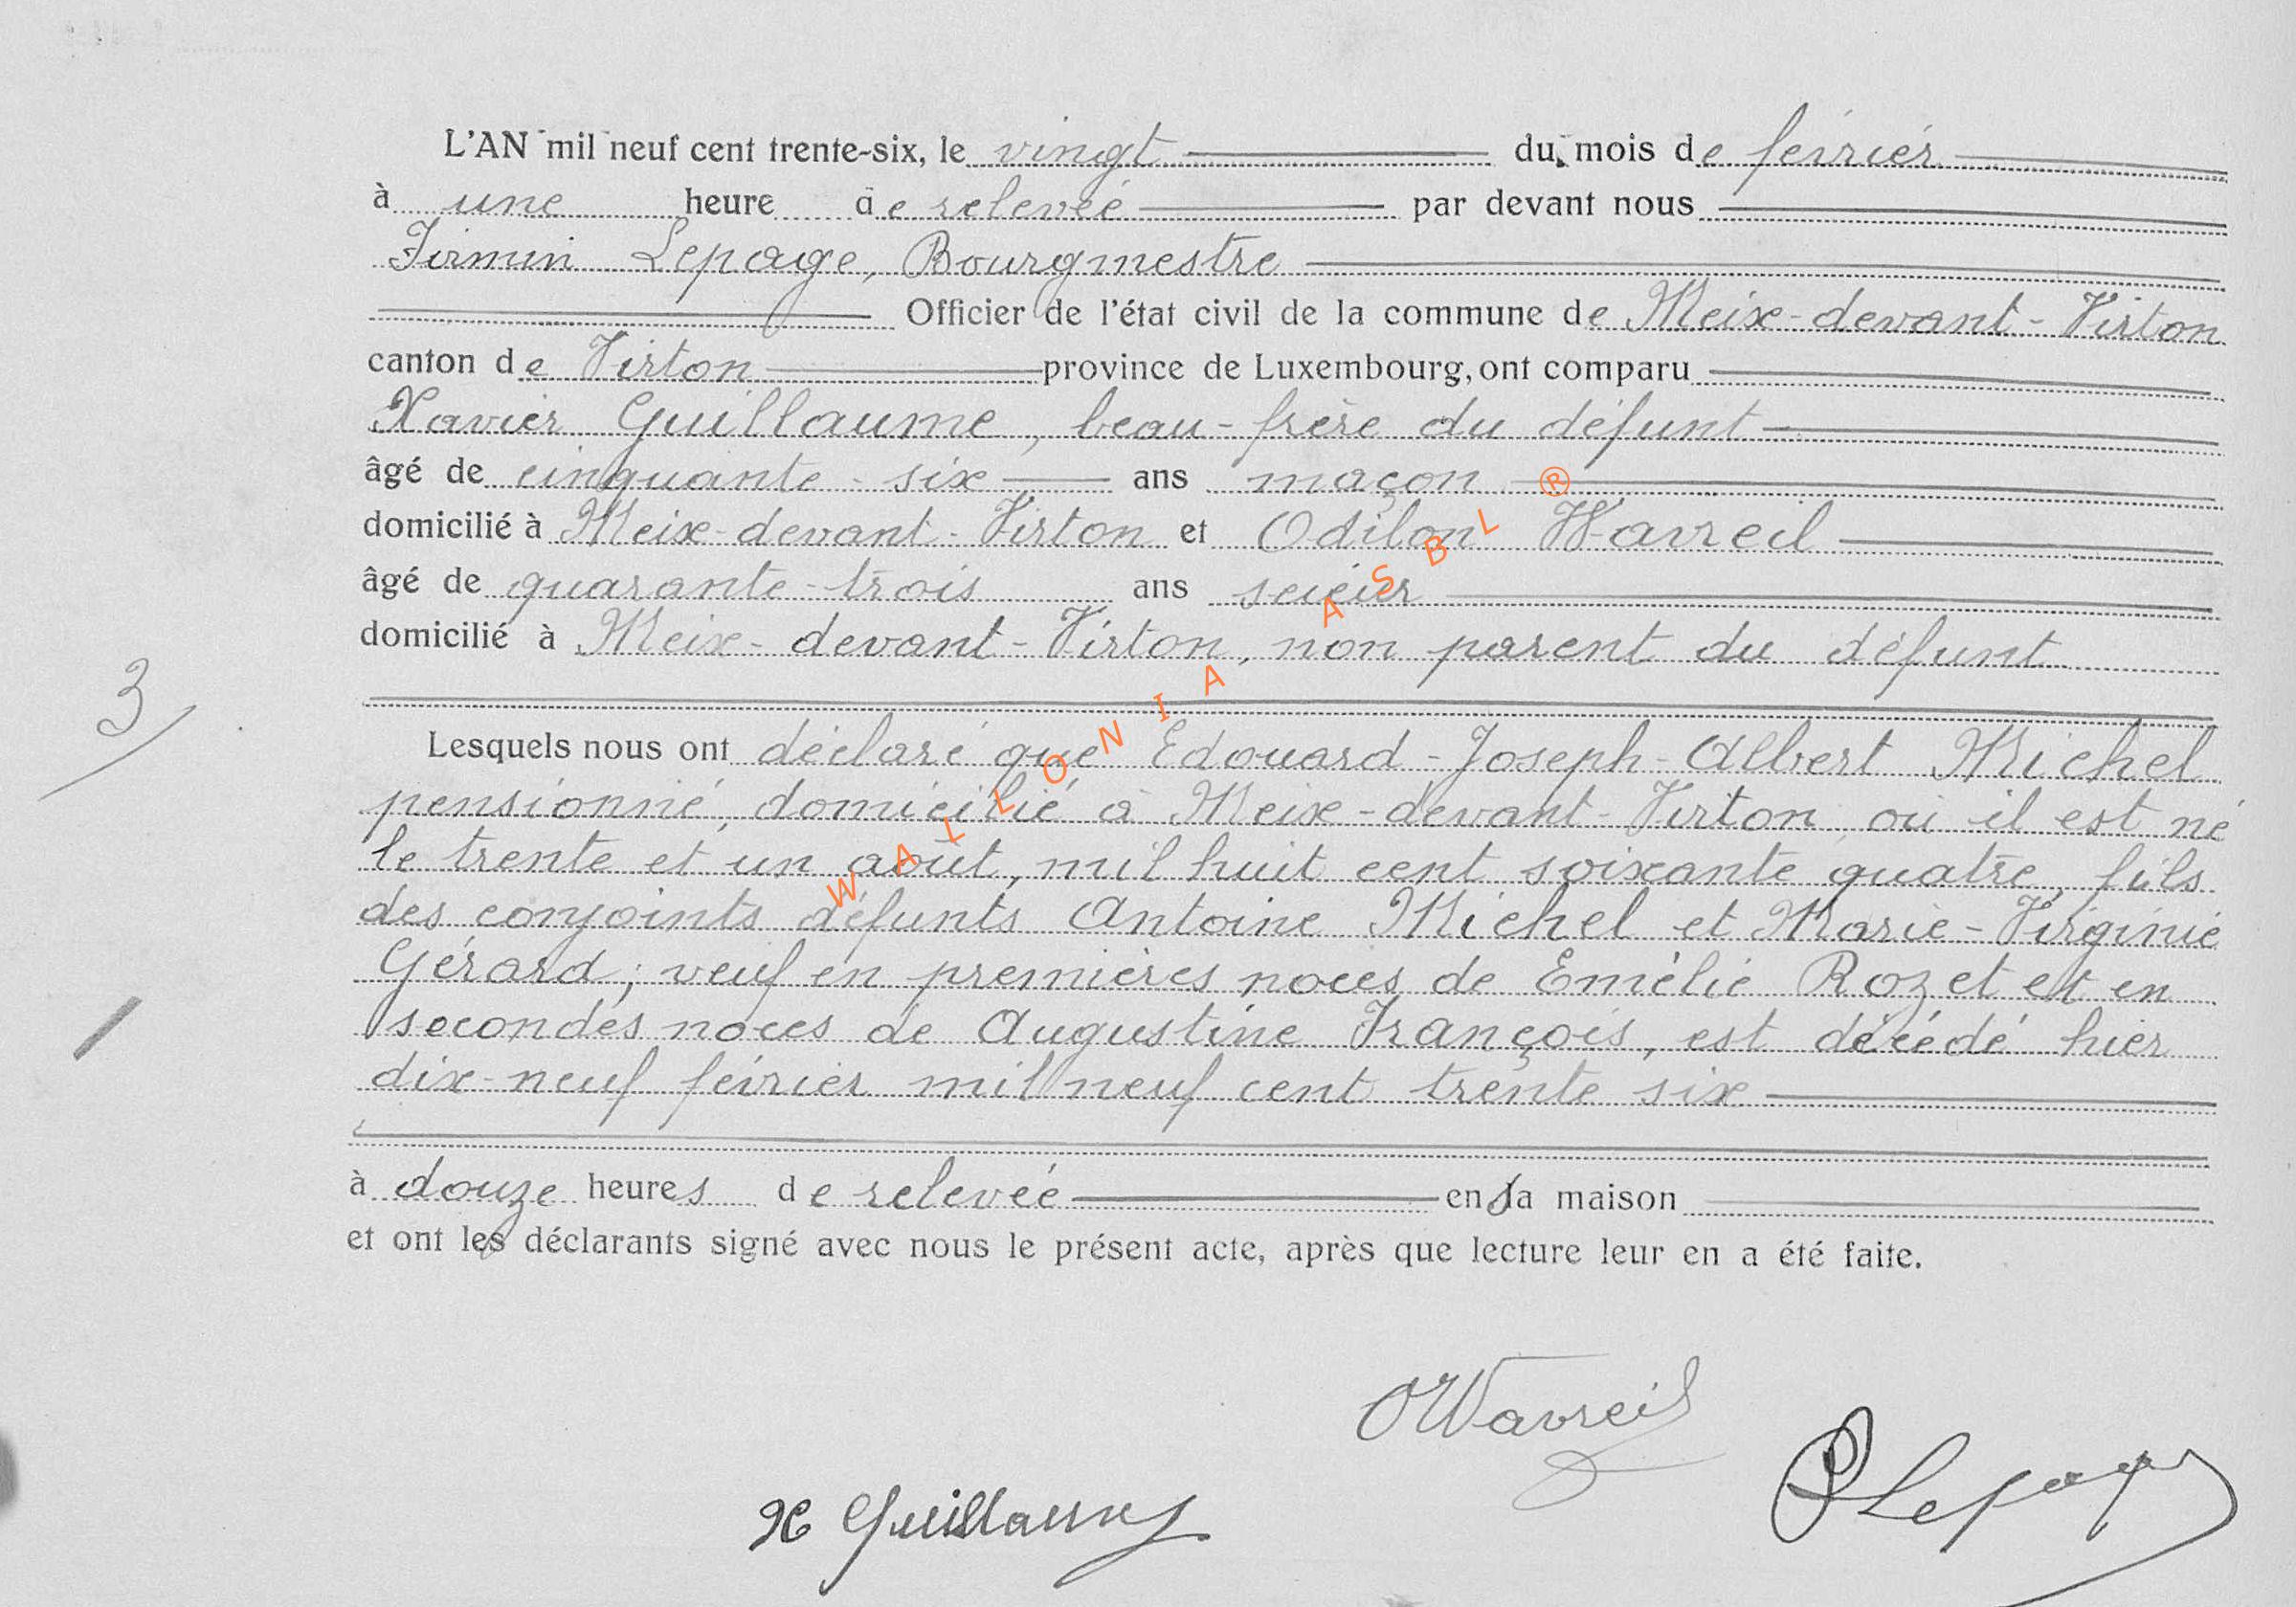 L'AN mil neuf cent trente-six, le vingt du mois de février
à une heure de relevée par devant nous
Firmin Lepage, Bourgmestre
Officier de l'état civil de la commune de Meix-devant-Virton
canton de Virton province de Luxembourg, ont comparu
Xavier Guillaume, beau-frère du défunt
âgé de cinquante-six ans maçon
domicilié à Meix-devant-Virton et Odilon Wavreil
âgé de quarante-trois ans scieur
domicilié à Meix-devant-Virton, non parent du défunt
3
Lesquels nous ont déclaré que Edouard-Joseph-Albert Michel
pensionné, domicilié à Meix-devant-Virton, où il est né
le trente et un août, mil huit cent soixante quatre, fils
des conjoints défunts Antoine Michel et Marie-Virginie
Gérard; veuf en premières noces de Emélie Rozet et en
secondes noces de Augustine François, est décédé hier
dix-neuf février mil neuf cent trente six
à douze heures de relevée en sa maison
et ont les déclarants signé avec nous le présent acte, après que lecture leur en a été faite.
OWavreil
X Guillaume
Lepage
WALLONIA ASBL ®